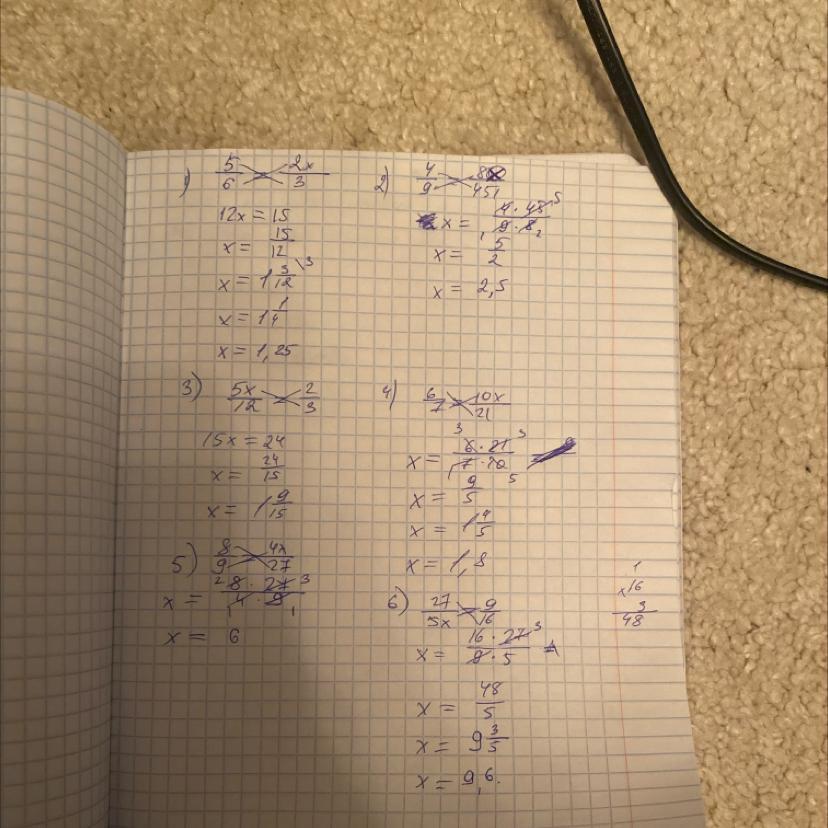 1) 5/6 = 2x/3
12x = 15
x = 15/12
x = 1 3/12 \3
x = 1 1/4
x = 1,25
2) 4/9 = 8x/45
x = 4·45/9·8
x = 5/2
x = 2,5
3) 5x/12 = 2/3
15x = 24
x = 24/15
x = 1 9/15
4) 6/7 = 10x/21
x = 6·21/7·10
x = 9/5
x = 1 4/5
x = 1,8
5) 8/9 = 4x/27
x = 8·27/4·9
x = 6
6) 27/5x = 9/16
x = 16·27/9·5
x = 48/5
x = 9 3/5
x = 9,6.
1
×16
3
48